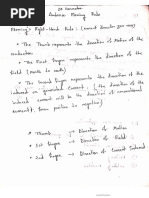 2A Semester
Guidance: Fleming Rule
Fleming's Right-Hand Rule
• The Thumb represents the direction of Motion of the
conductor.
• The First finger represents the direction of the
field. (north to south)
• The
finger represents the direction of the
induced or generated current (the direction of the
induced current will be the direction of conventional
current; from positive to negative).
• Thumb → Direction of Motion
• 1st finger → Direction of field
• 2nd finger → Direction of Current induced